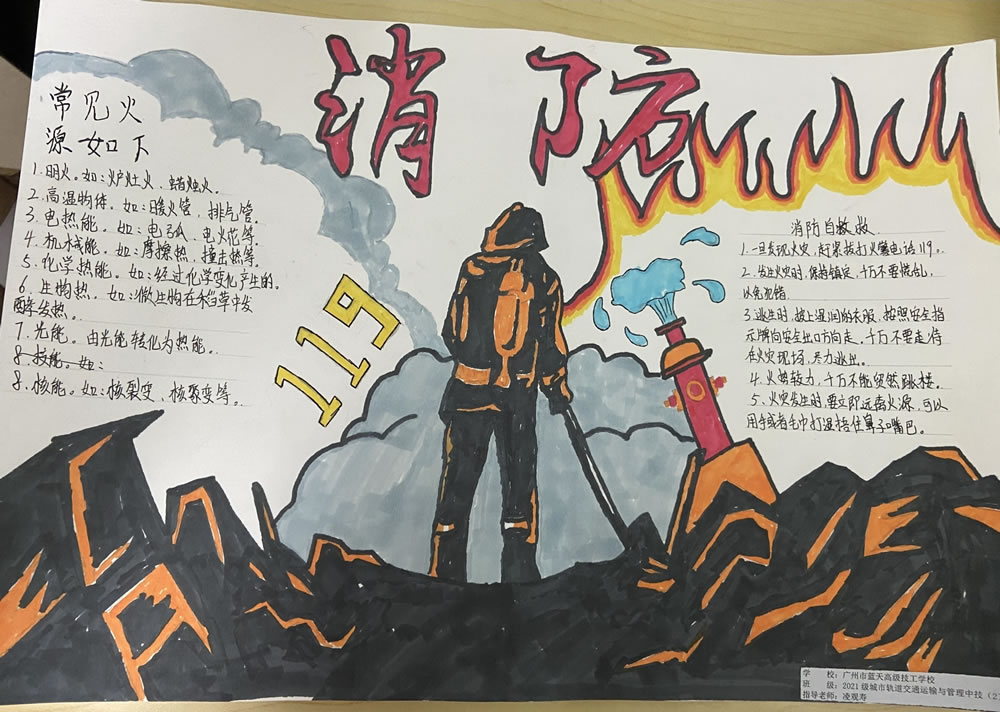 消防
常见火
源如下
1.明火。如：炉灶火、蜡烛火。
2.高温物体。如：暖火管、排气管。
3.电热能。如：电弧、电火花等。
4.机械能。如：摩擦热、撞击热等。
5.化学热能。如：经过化学变化产生的。
6.生物热。如：微生物在稻草中发
酵发热。
7.光能。由光能转化为热能。
8.核能。如：
8.核能。如：核裂变、核聚变等。
119
消防自救
1.一旦发现火灾，赶紧拨打火警电话119。
2.发生火灾时，保持镇定，千万不要慌乱，
以免犯错.
3.逃生时，披上湿润的衣服，按照安全指
示牌向安全出口方向走，千万不要
火灾现场，尽力逃出。
4.火势猛力，千万不能贸然跳楼。
5.火灾发生时，要立即远离火源，可以
用手或者毛巾打湿捂住鼻子嘴巴。
学 校：广州市蓝天高级技工学校
班 级：2021级城市轨道交通运输与管理中技（2
指导老师：凌观寿